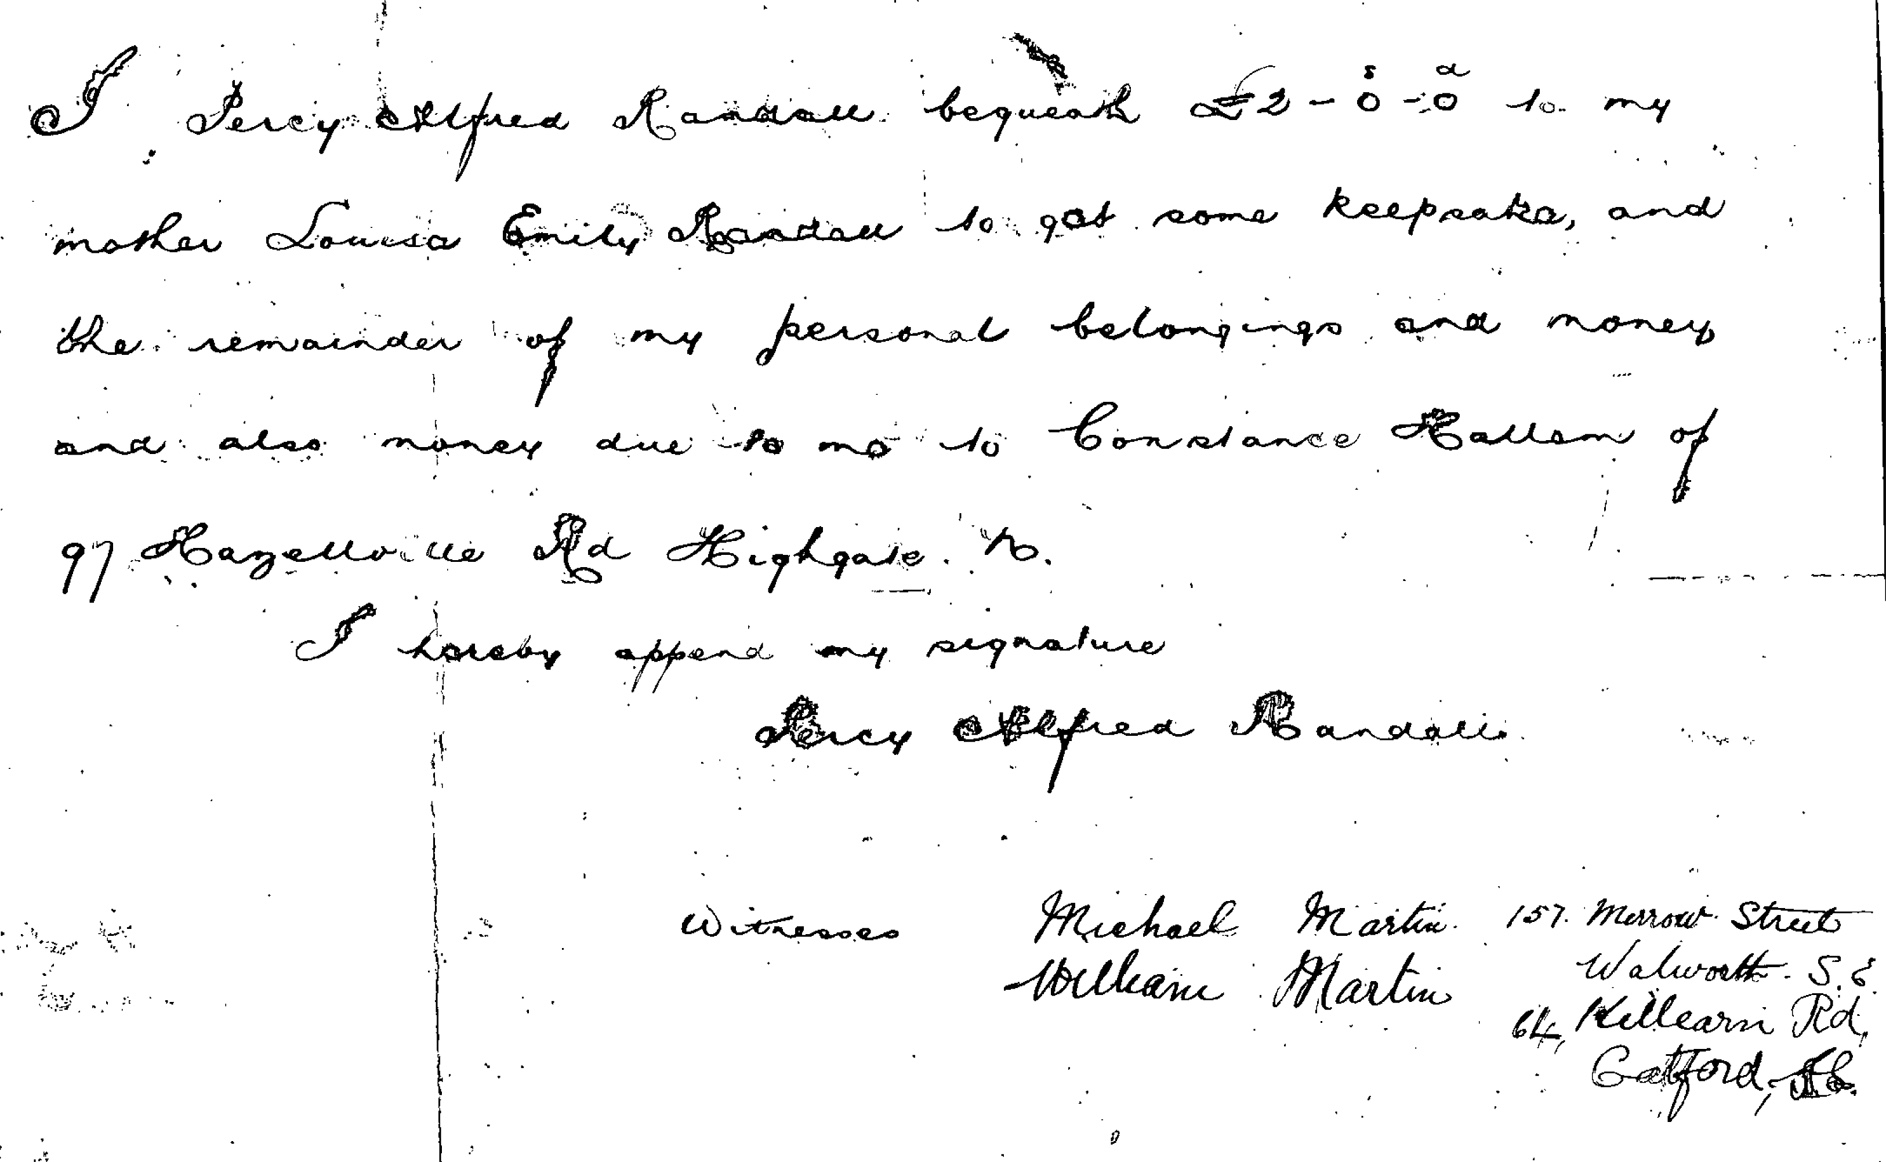 I Percy Alfred Randall bequeath £2 - 0s - 0d to my
mother Louisa Emily Randall to get some keepsake, and
the remainder of my personal belongings and money
and also money due to me to Constance Hallam of
97 Hazellville Rd Highgate. N.
I hereby append my signature
Percy Alfred Randall.
Witnesses Michael Martin. 157. Merrow Street
Walworth. S.E.
William Martin
64, Killearn Rd,
Catford,